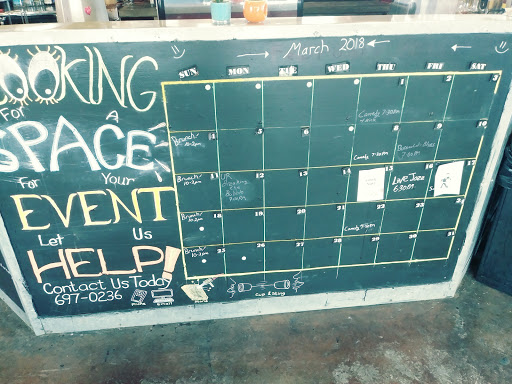 LOOKING
For A
SPACE
For Your
EVENT
Let Us
HELP!
Contact Us Today
697-0236
Phone Email
March 2018
SUN MON TUE WED THU FRI SAT
1 2 3
Comedy 7:30pm
4 5 6 7 8 9 10
Brunch
10-2pm
Comedy 7:30pm
7:30pm
11 12 13 14 15 16 17
Brunch
10-2pm
Live Jazz
6:30pm
18 19 20 21 22 23 24
Brunch
10-2pm
Comedy 7:30pm
25 26 27 28 29 30 31
Brunch
10-2pm
Cup & String